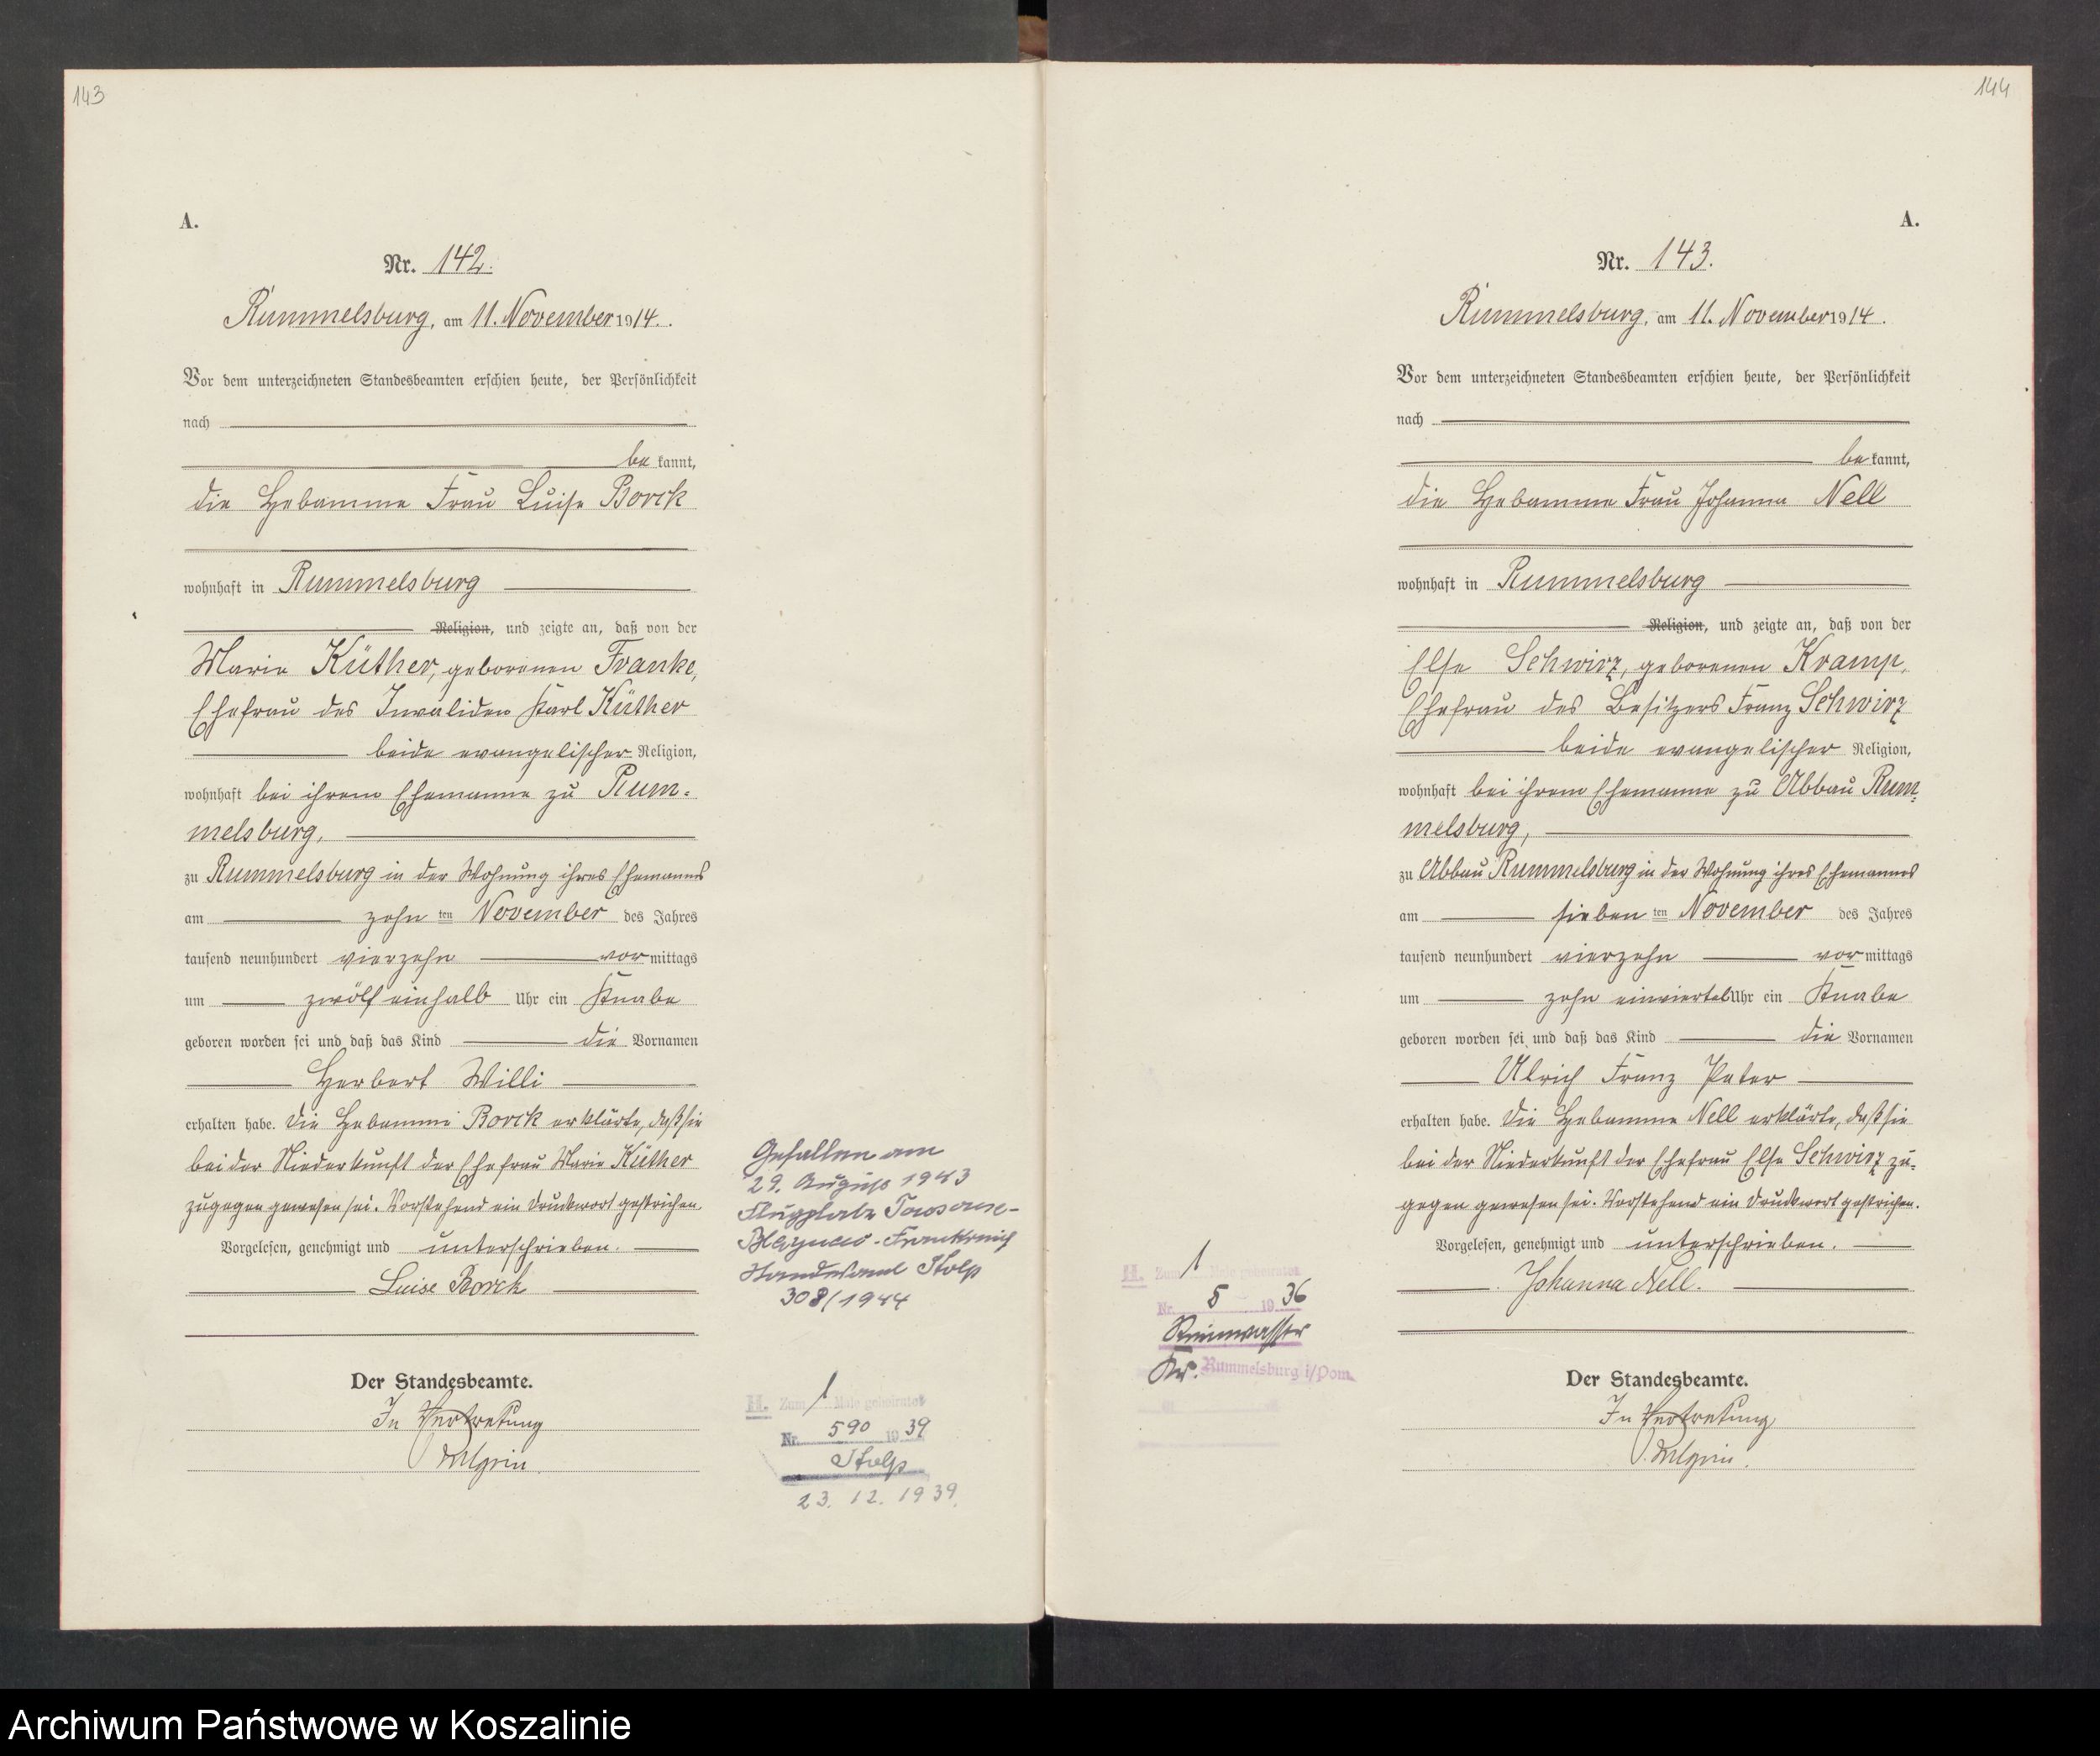 143
A.
Nr. 142.
Rummelsburg, am 11. November 1914.
Vor dem unterzeichneten Standesbeamten erschien heute, der Persönlichkeit
nach
be kannt,
die Hebamme Frau Luise Borck
wohnhaft in Rummelsburg
Religion, und zeigte an, daß von der
Marie Küther, geborenen Franke,
Ehefrau des Invaliden Karl Küther
beide evangelischer Religion,
wohnhaft bei ihrem Ehemanne zu Rum-
melsburg,
zu Rummelsburg in der Wohnung ihres Ehemannes
am zehn ten November des Jahres
tausend neunhundert vierzehn vor mittags
um zwölf einhalb Uhr ein Knabe
geboren worden sei und daß das Kind die Vornamen
Herbert Willi
erhalten habe. Die Hebamme Borck erklärte, daß sie
bei der Niederkunft der Ehefrau Marie Küther
zugegen gewesen sei. Vorstehend ein Druckwort gestrichen.
Vorgelesen, genehmigt und unterschrieben.
Luise Borck
Der Standesbeamte.
In Vertretung
Gefallen am
29. August 1943
Flugplatz
Frankreich
Standesamt Stolp
308/1944
H. Zum 1 Male geheiratet
Nr. 590 1939
Stolp
23. 12. 1939.
144
A.
Nr. 143.
Rummelsburg, am 11. November 1914.
Vor dem unterzeichneten Standesbeamten erschien heute, der Persönlichkeit
nach
be kannt,
die Hebamme Frau Johanna Nell
wohnhaft in Rummelsburg
Religion, und zeigte an, daß von der
Else Schwirz, geborenen Kramp,
Ehefrau des Besitzers Franz Schwirz
beide evangelischer Religion,
wohnhaft bei ihrem Ehemanne zu Abbau Rum-
melsburg,
zu Abbau Rummelsburg in der Wohnung ihres Ehemannes
am sieben ten November des Jahres
tausend neunhundert vierzehn vor mittags
um zehn einviertel Uhr ein Knabe
geboren worden sei und daß das Kind die Vornamen
Ulrich Franz Peter
erhalten habe. Die Hebamme Nell erklärte, daß sie
bei der Niederkunft der Ehefrau Else Schwirz zu-
gegen gewesen sei. Vorstehend ein Druckwort gestrichen.
Vorgelesen, genehmigt und unterschrieben.
Johanna Nell.
Der Standesbeamte.
In Vertretung
H. Zum 1 Male geheiratet
Nr. 5 1936
Reinwasser
Kr. Rummelsburg i/Pom.
Archiwum Państwowe w Koszalinie